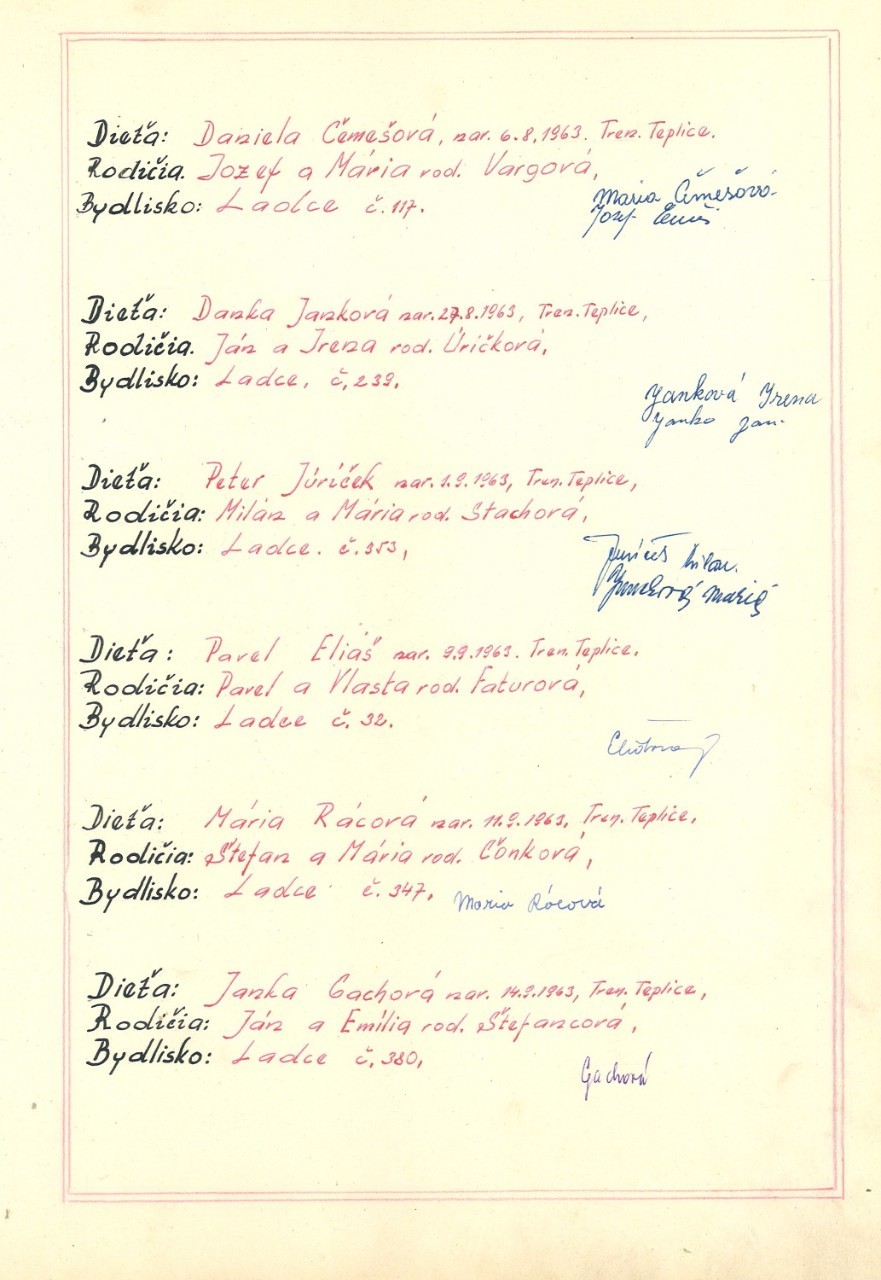 Dieťa: Daniela Čemešová, nar. 6.8.1963. Tren. Teplice.
Rodičia. Jozef a Mária rod. Vargová,
Bydlisko: Ladce č. 117.
Mária Čemešová
Jozef
Dieťa: Danka Janková nar. 27.8.1963, Tren. Teplice,
Rodičia. Ján a Irena rod. Úričková,
Bydlisko: Ladce, č, 239.
Janková Irena
Janko Jan
Dieťa: Peter Júríček nar. 1.9.1963, Tren. Teplice,
Rodičia: Milán a Mária rod. Stachorá,
Bydlisko: Ladce. č. 353,
Milan.
Mariá
Dieťa: Pavel Eliáš nar. 9.9.1963. Tren. Teplice.
Rodičia: Pavel a Vlasta rod. Faturová,
Bydlisko: Ladce č. 32.
Dieťa: Mária Rácová nar. 11.9.1963, Tren. Teplice,
Rodičia: Štefan a Mária rod. Čonková,
Bydlisko: Ladce č. 347,
Maria Rácová
Dieťa: Janka Gachorá nar. 14.9.1963, Tren. Teplice,
Rodičia: Ján a Emília rod. Štefancorá,
Bydlisko: Ladce č, 380,
Gachorá